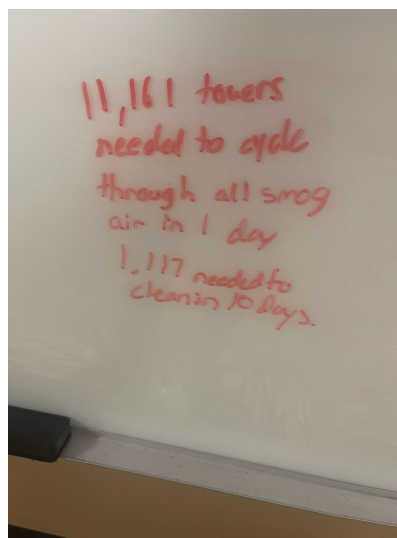 11,161 towers
needed to cycle
through all smog
air in 1 day
1,117 needed to
clean in 10 days.